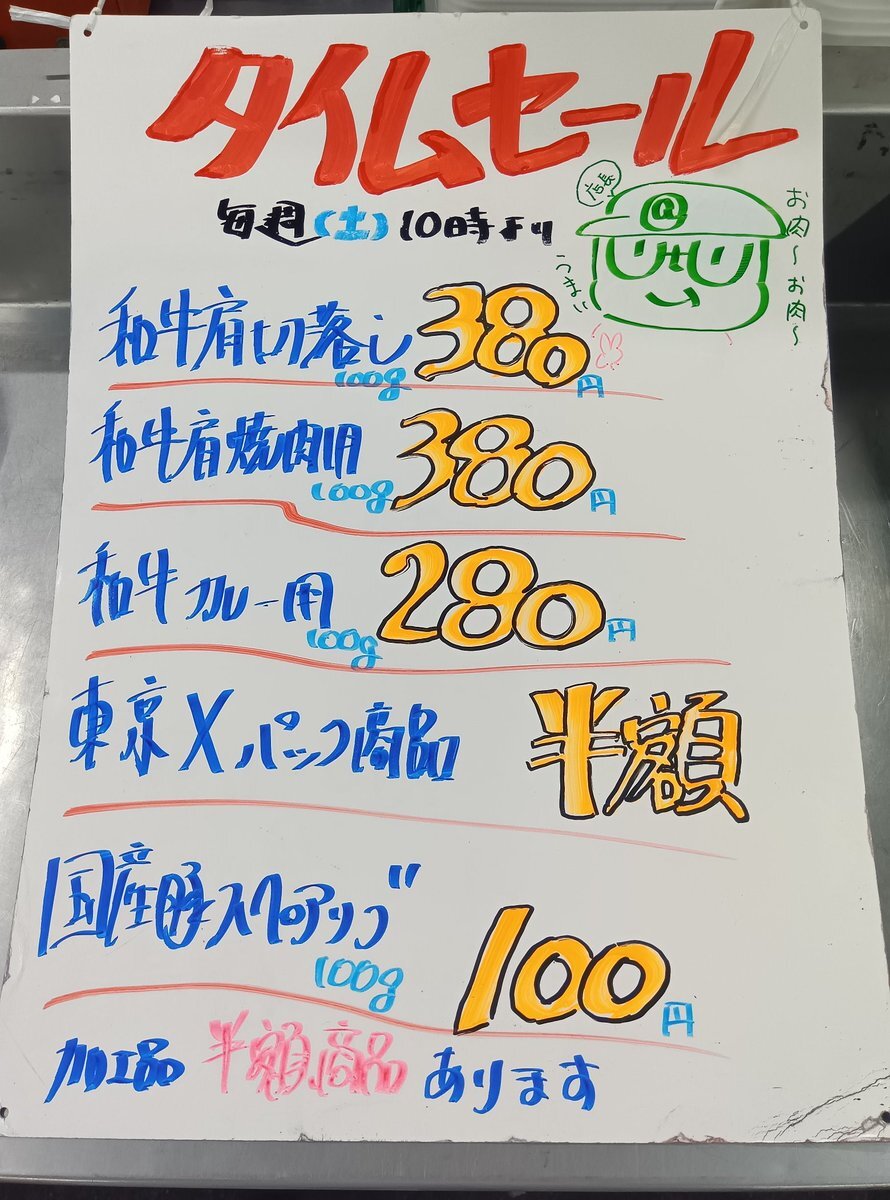 タイムセール
毎週(土)10時より
店長
@
お肉〜お肉〜
うまい
和牛肩切落し 100g 380円
和牛肩焼肉用 100g 380円
和牛カレー用 100g 280円
東京Xパック商品 半額
国産豚スペアリブ 100g 100円
加工品 半額商品 あります